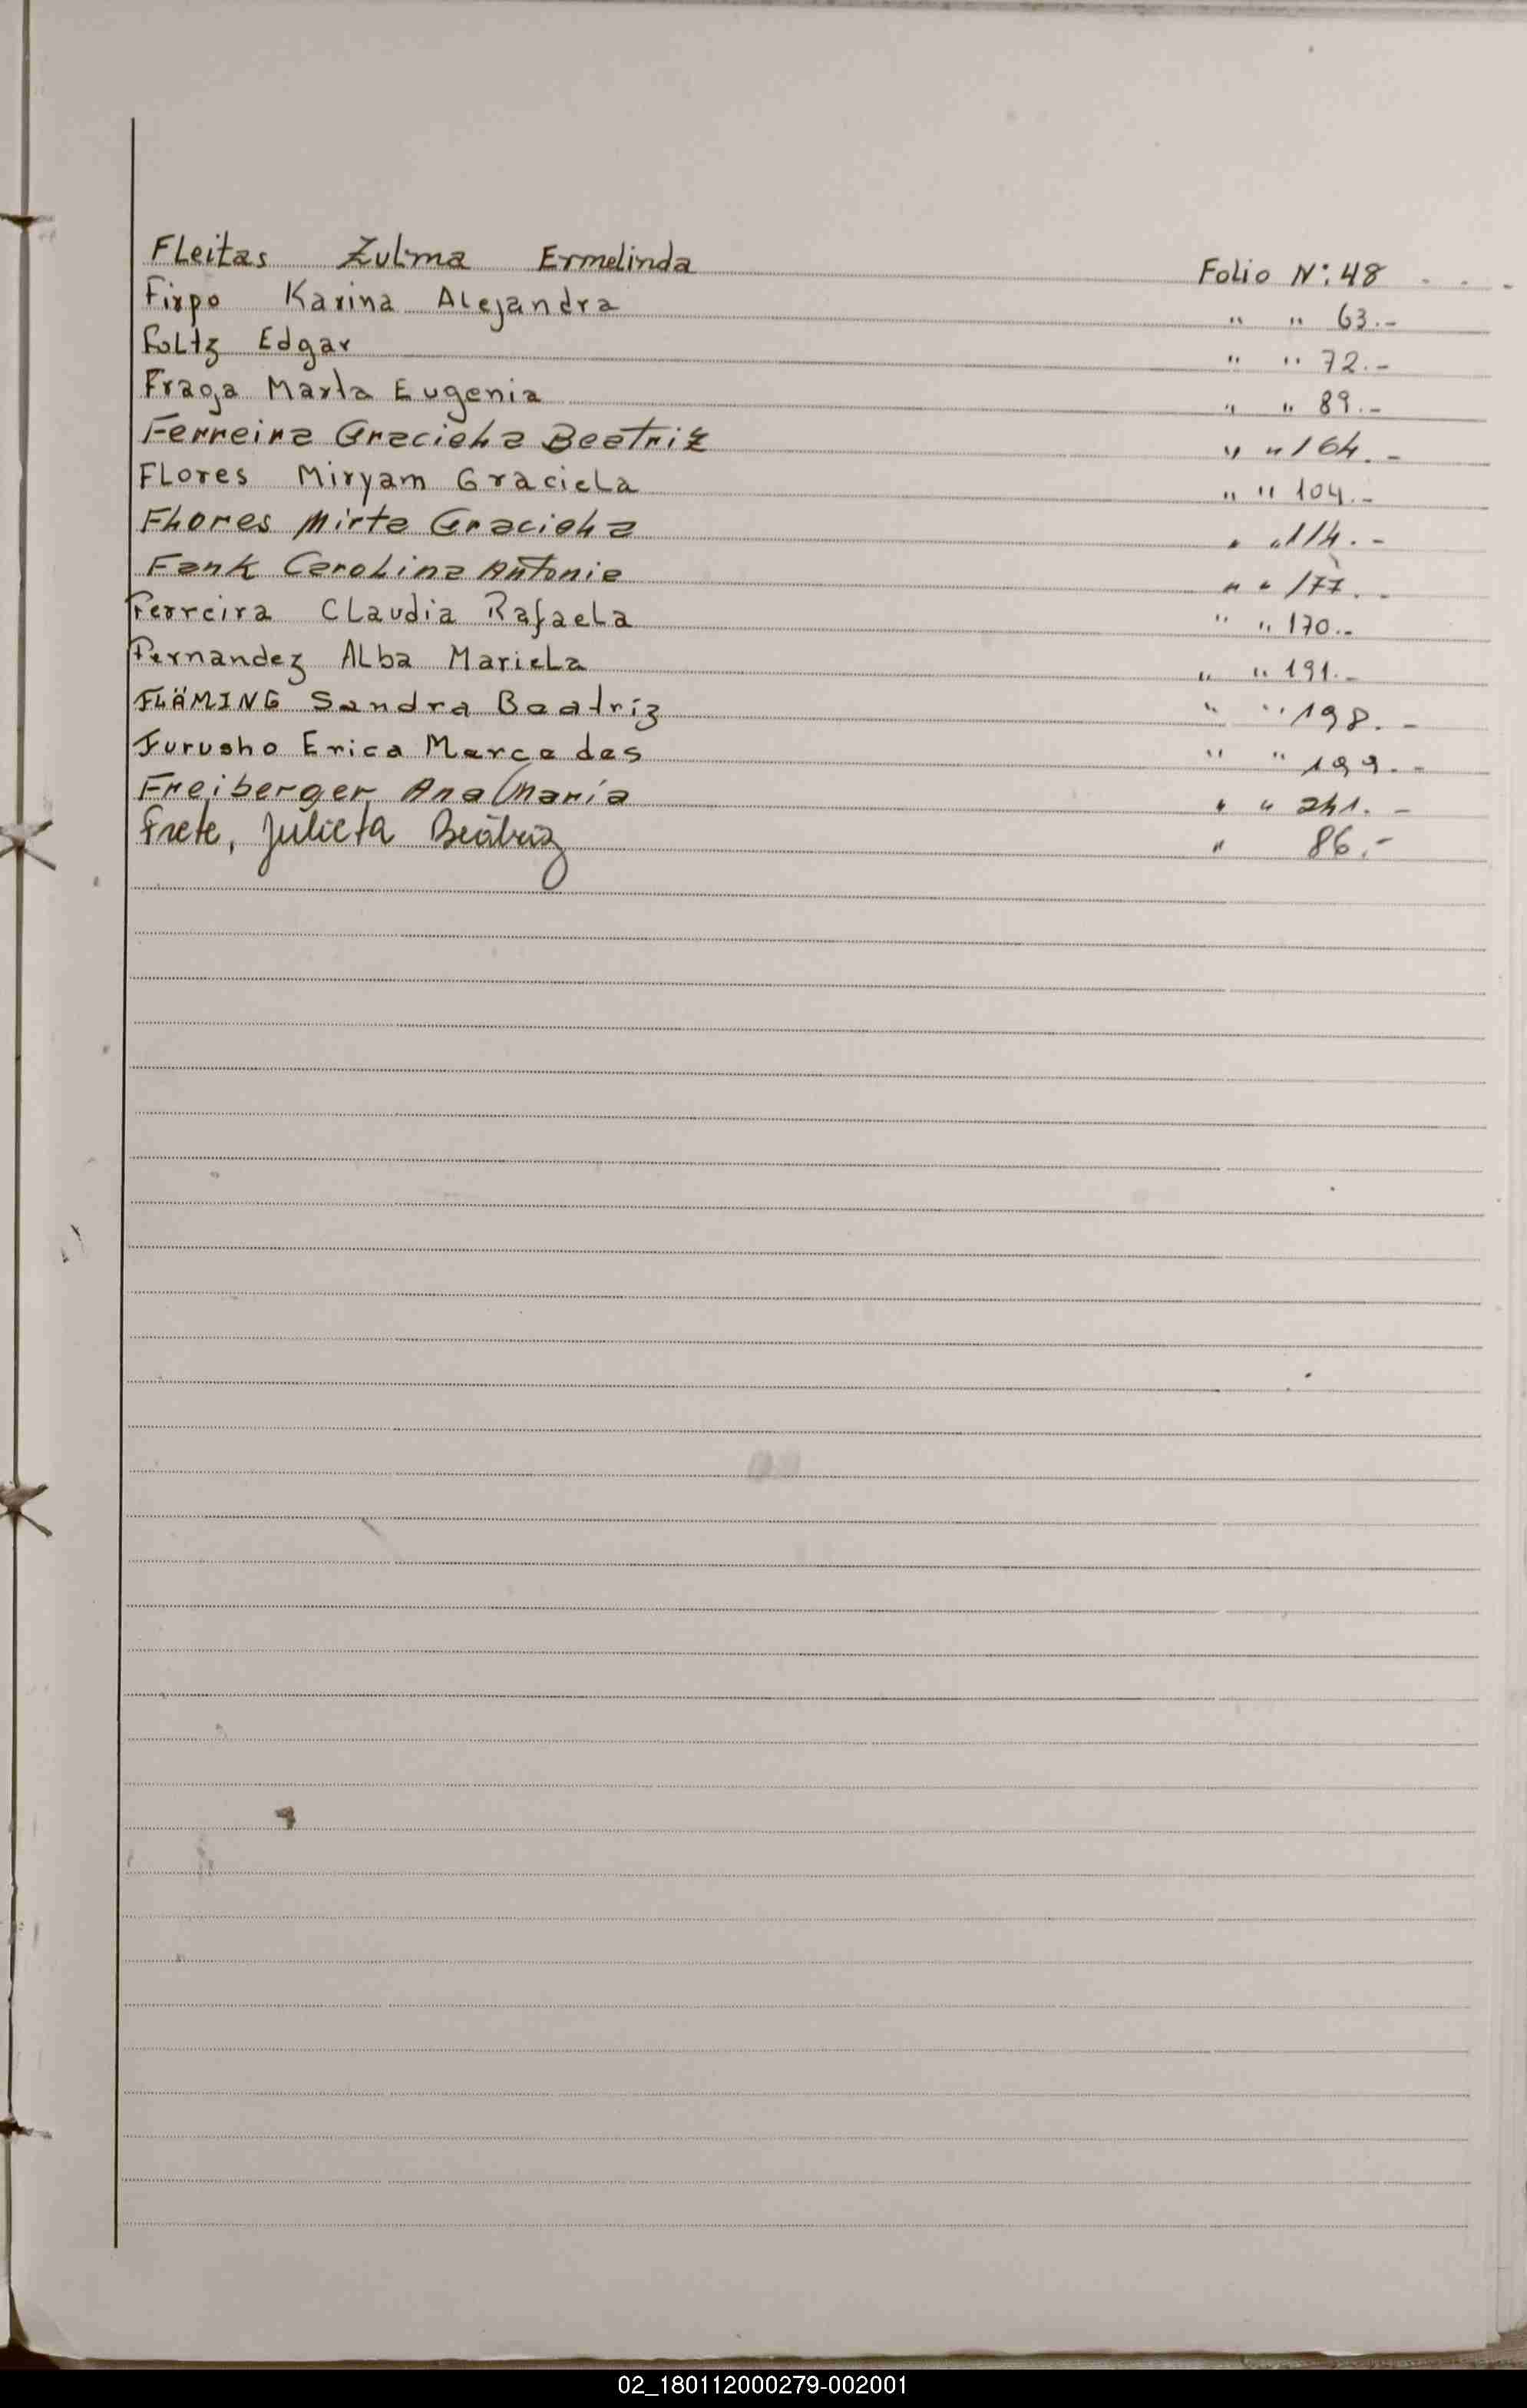 Fleitas Zulma Ermelinda Folio N: 48 - - -
Firpo Karina Alejandra " " 63.-
Foltz Edgar " " 72.-
Fraga Marta Eugenia " " 89.-
Ferreira Graciela Beatriz " " 164.-
Flores Miryam Graciela " " 104.-
Flores Mirta Graciela " " 114.-
Fank Carolina Antonia " " 177.-
Ferreira Claudia Rafaela " " 170.-
Fernandez Alba Mariela " " 191.-
FLÄMING Sandra Beatríz " " 198.-
Furusho Erica Mercedes " " 199.-
Freiberger Ana María " " 241.-
Frete, Julieta Beatriz " 86.-
02_180112000279-002001